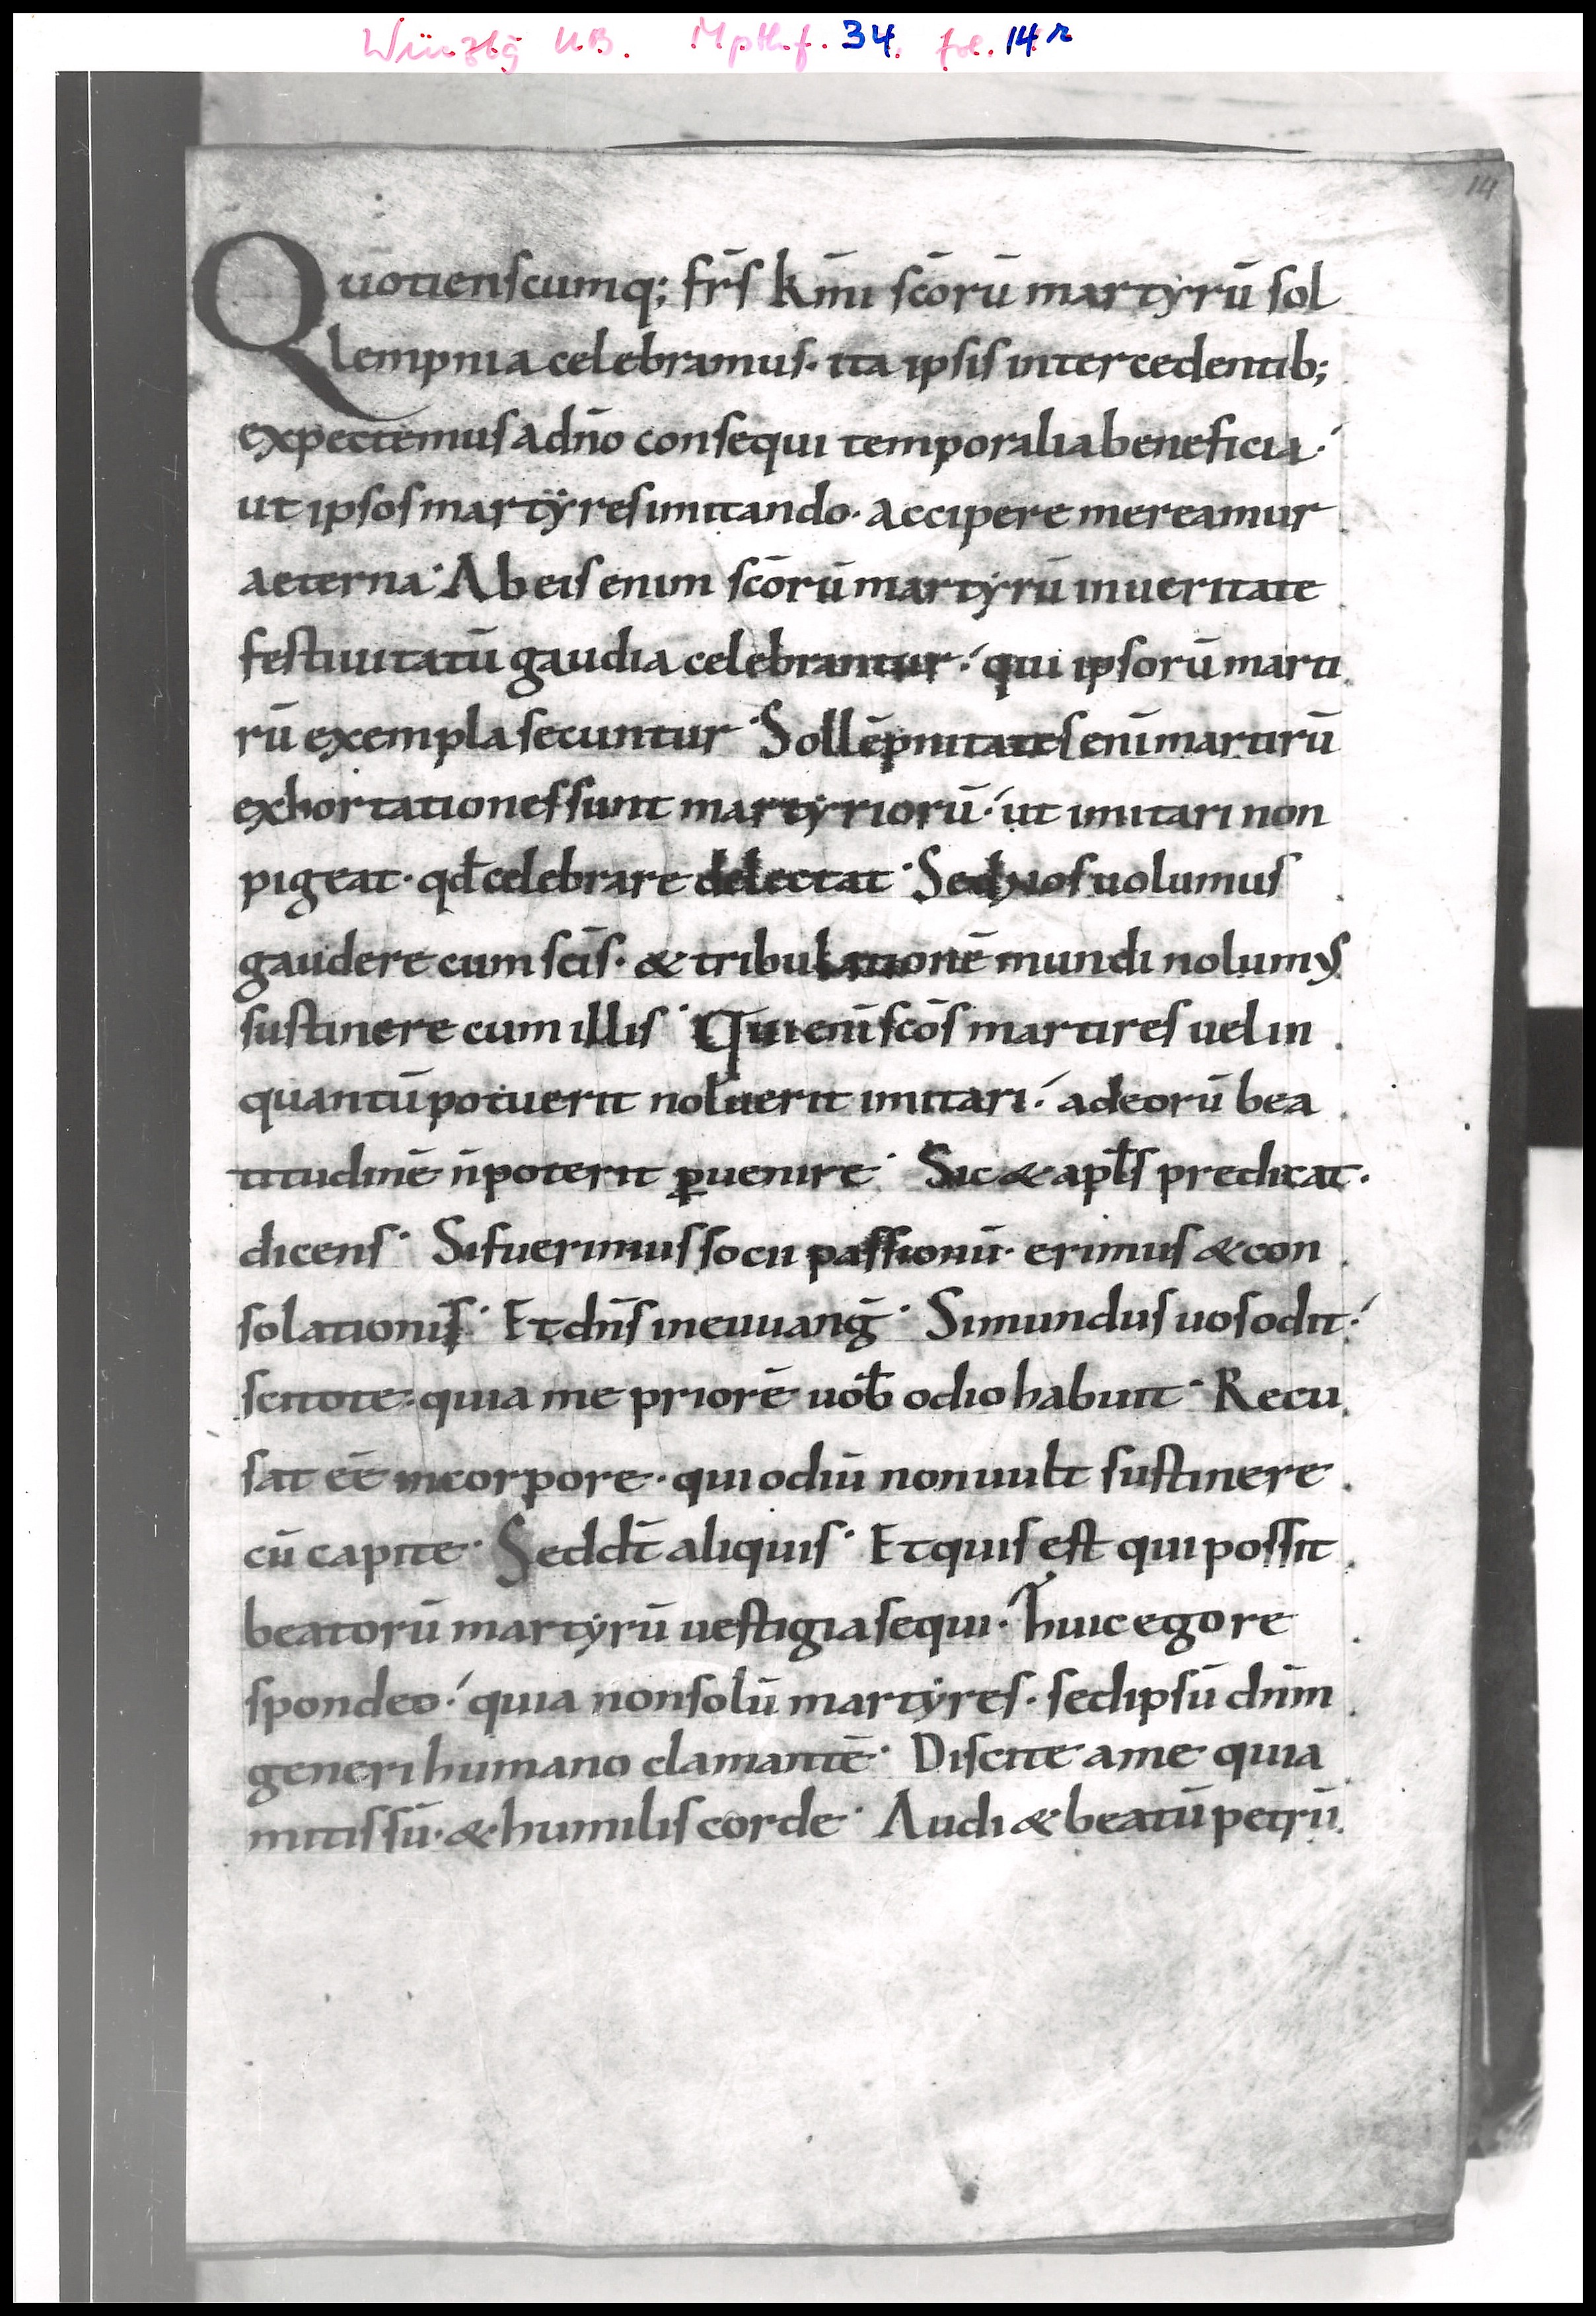 Würzbg UB. Mp.th.f. 34. fol. 14r
14
Quotienscumq; fr̄s km̄i sc̄orū martyrū sol
lempnia celebramus· ita ipsis intercedentib;
expectemus a dn̄o consequi temporalia beneficia·
ut ipsos martẏres imitando· accipere mereamur
aeterna· Ab eis enim sc̄orū martẏrū in ueritate
festiuitatū gaudia celebrantur· qui ipsorū marti
rū exempla secuntur· Sollēpnitates enī martirū
exhortationes sunt martẏriorū· ut imitari non
pigeat· qđ celebrare delectat· Sed nos uolumus
gaudere cum scīs· & tribulationē mundi nolumus
sustinere cum illis· Qui enī sc̄os martires uel in
quantū potuerit noluerit imitari· ad eorū bea
titudinē n̄ poterit ꝑuenire· Sic & apłs predicat·
dicens· Si fuerimus socii passionū· erimus & con
solationis· Et dn̄s in euuanḡ· Si mundus uos odit·
scitote· quia me priorē uob̄ odio habuit· Recu
sat eē in corpore· qui odiū non uult sustinere
cū capite· Sed dt̄ aliquis· Et quis est qui possit
beatorū martẏrū uestigia sequi· huic ego re
spondeo· quia non solū martẏres· sed ipsū dn̄m
generi humano clamantē· Discite a me quia
mitis sū· & humilis corde· Audi & beatū petrū